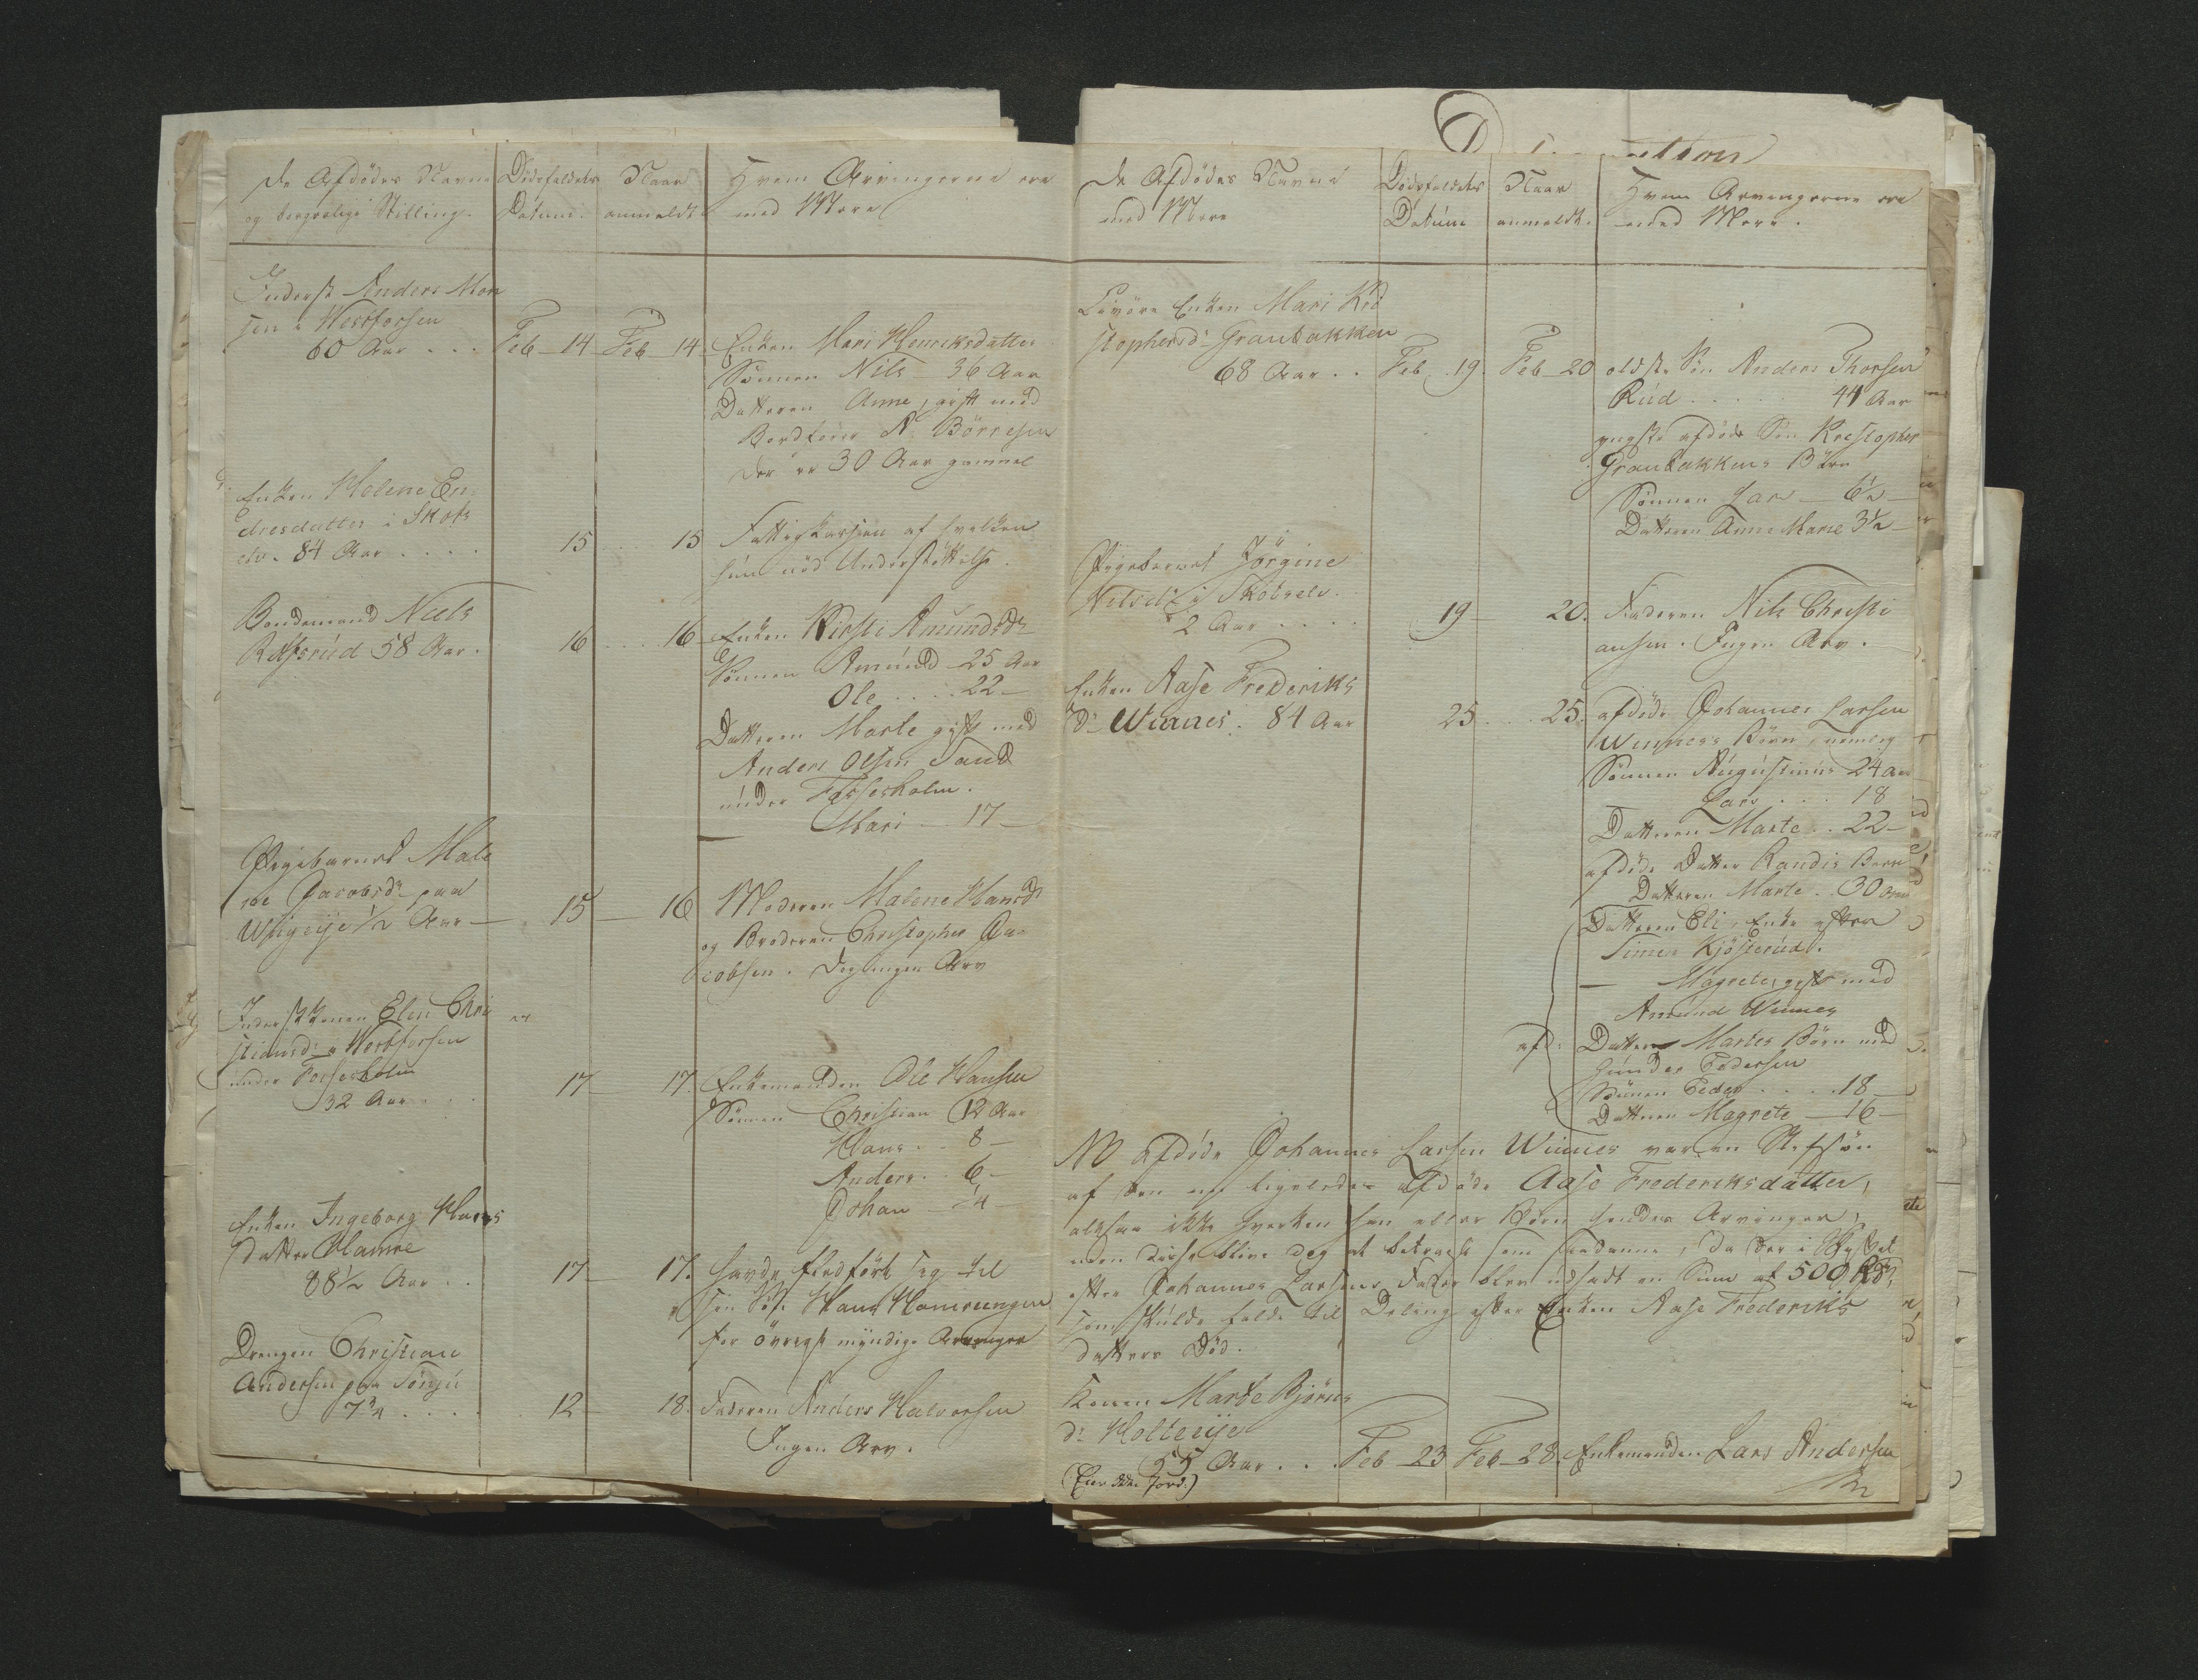 De Afdödes Navne
og borgerlige Stilling.
Dödsfaldets
Datum.
Naar
anmeldt
Hvem Arvingerne ere
med Mere
Inderst Anders Mon
sen i Westfossen
60 Aar . . .
Feb 14
Feb 14
Enken Mari Henriksdatter
Sönnen Nils 36 Aar
Datteren Anne, gift med
N. Börresen
der er 30 Aar gammel
Enken Helene En-
dresdatter i Skots
elv. 84 Aar . . . .
15
15
Fattigkassen af hvilken
hun nöd Understöttelse.
Bondemand Niels
Rolfsrud 58 Aar.
16
16
Enken Kirsti Amundsdr
Sönnen Amund 25 Aar
Ole . . . . 22 –
Datteren Marte gift med
Anders Olsen Sand
under Fossesholm.
Mari – 17 –
Pigebarnet Male
ne Jacobsdr paa
½ Aar –
15
16
Moderen Malene Hansdr
og Broderen Christopher Ja-
cobsen. Dog ingen Arv
Inderstkonen Elen Chri
stiansdr i Westfossen
under Fossesholm
32 Aar . . .
17
17.
Enkemanden Ole Hansen
Sönnen Christian 12 Aar
Hans . . 8 –
Anders . . 6 –
Johan – ¼ –
Enken Ingeborg Hans
datter Hamre
88½ Aar . .
17
17.
havde fledfört sig til
sin Hans
for övrigt myndige Arvinger
Drengen Christian
Andersen paa Sönju
7¾ . . . .
12
18.
Faderen Anders Halvorsen
Ingen Arv.
De Afdödes Navne
med Mere
Dödsfaldets
Datum
Naar
anmeldt.
Hvem Arvingerne ere
med Mere.
Enken Mari Kri
stophersdr Granbakken
68 Aar . .
Feb. 19.
Feb 20
eldste Sön Anders Thorsen
Rud . . . . . 44 Aar
yngste afdöde Sön Kristopher
Granbakkens Börn
Sönnen Lars – 6½ –
Datteren Anne Marie 3½ –
Pigebarnet Jörgine
Nilsdr i Skotselv.
2 Aar . . . .
19
20.
Faderen Nils Christi
ansen. Ingen Arv.
Enken Aase Frederiks
dr Winnes. 84 Aar
25
25.
afdöde Johannes Larsen
Winness Börn, nemlig
Sönnen Augustinus 24 Aar
Lars . . . 18
Datteren Marte . . 22 –
afdöde Datter Randis Barn
Datteren Marte . 30 Aar
Datteren Eli, Enke efter
Simen Kjösterud.
– Magrete, gift med
Amund Winnes
afd: Datters Martes Börn med
Gunder Pedersen
Sönnen Peder . . . . 18 –
Datteren Magrete – 16 –
NB afdöde Johannes Larsen Winnes var en Stefsön
af den nu ligeledes afdöde Aase Frederiksdatter,
altsaa ikke hverken han eller Börn hendes Arvinger,
men disse blive dog at betragte som saadanne, da der i Skiftet
efter Johannes Larsens Fader blev udsadt en Sum af 500 Rdr,
som skulde falde til Deling efter Enken Aase Frederiks
datters Död.
Konen Marte Björns
dr Holteeije
55 Aar . . .
(Eier ikke Jord.)
Feb 23
Feb 28.
Enkemanden Lars Andersen